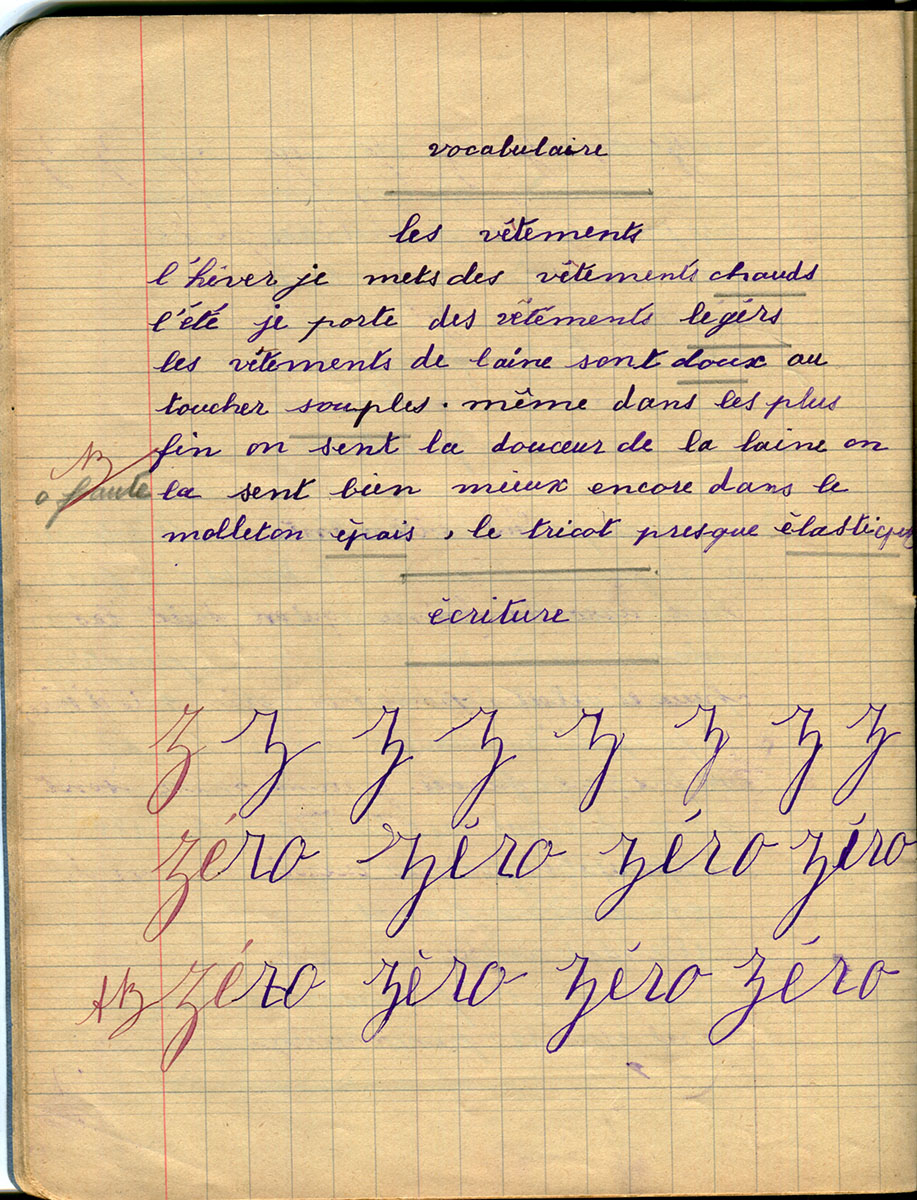 vocabulaire
les vêtements
l'hiver je mets des vêtements chauds
l'été je porte des vêtements légérs
les vêtements de laine sont doux au
toucher souples. même dans les plus
B fin on sent la douceur de la laine on
0 faute la sent bien mieux encore dans le
molleton épais, le tricot presque élastique
écriture
z z z z z z z z
zéro zéro zéro zéro
TB zéro zéro zéro zéro